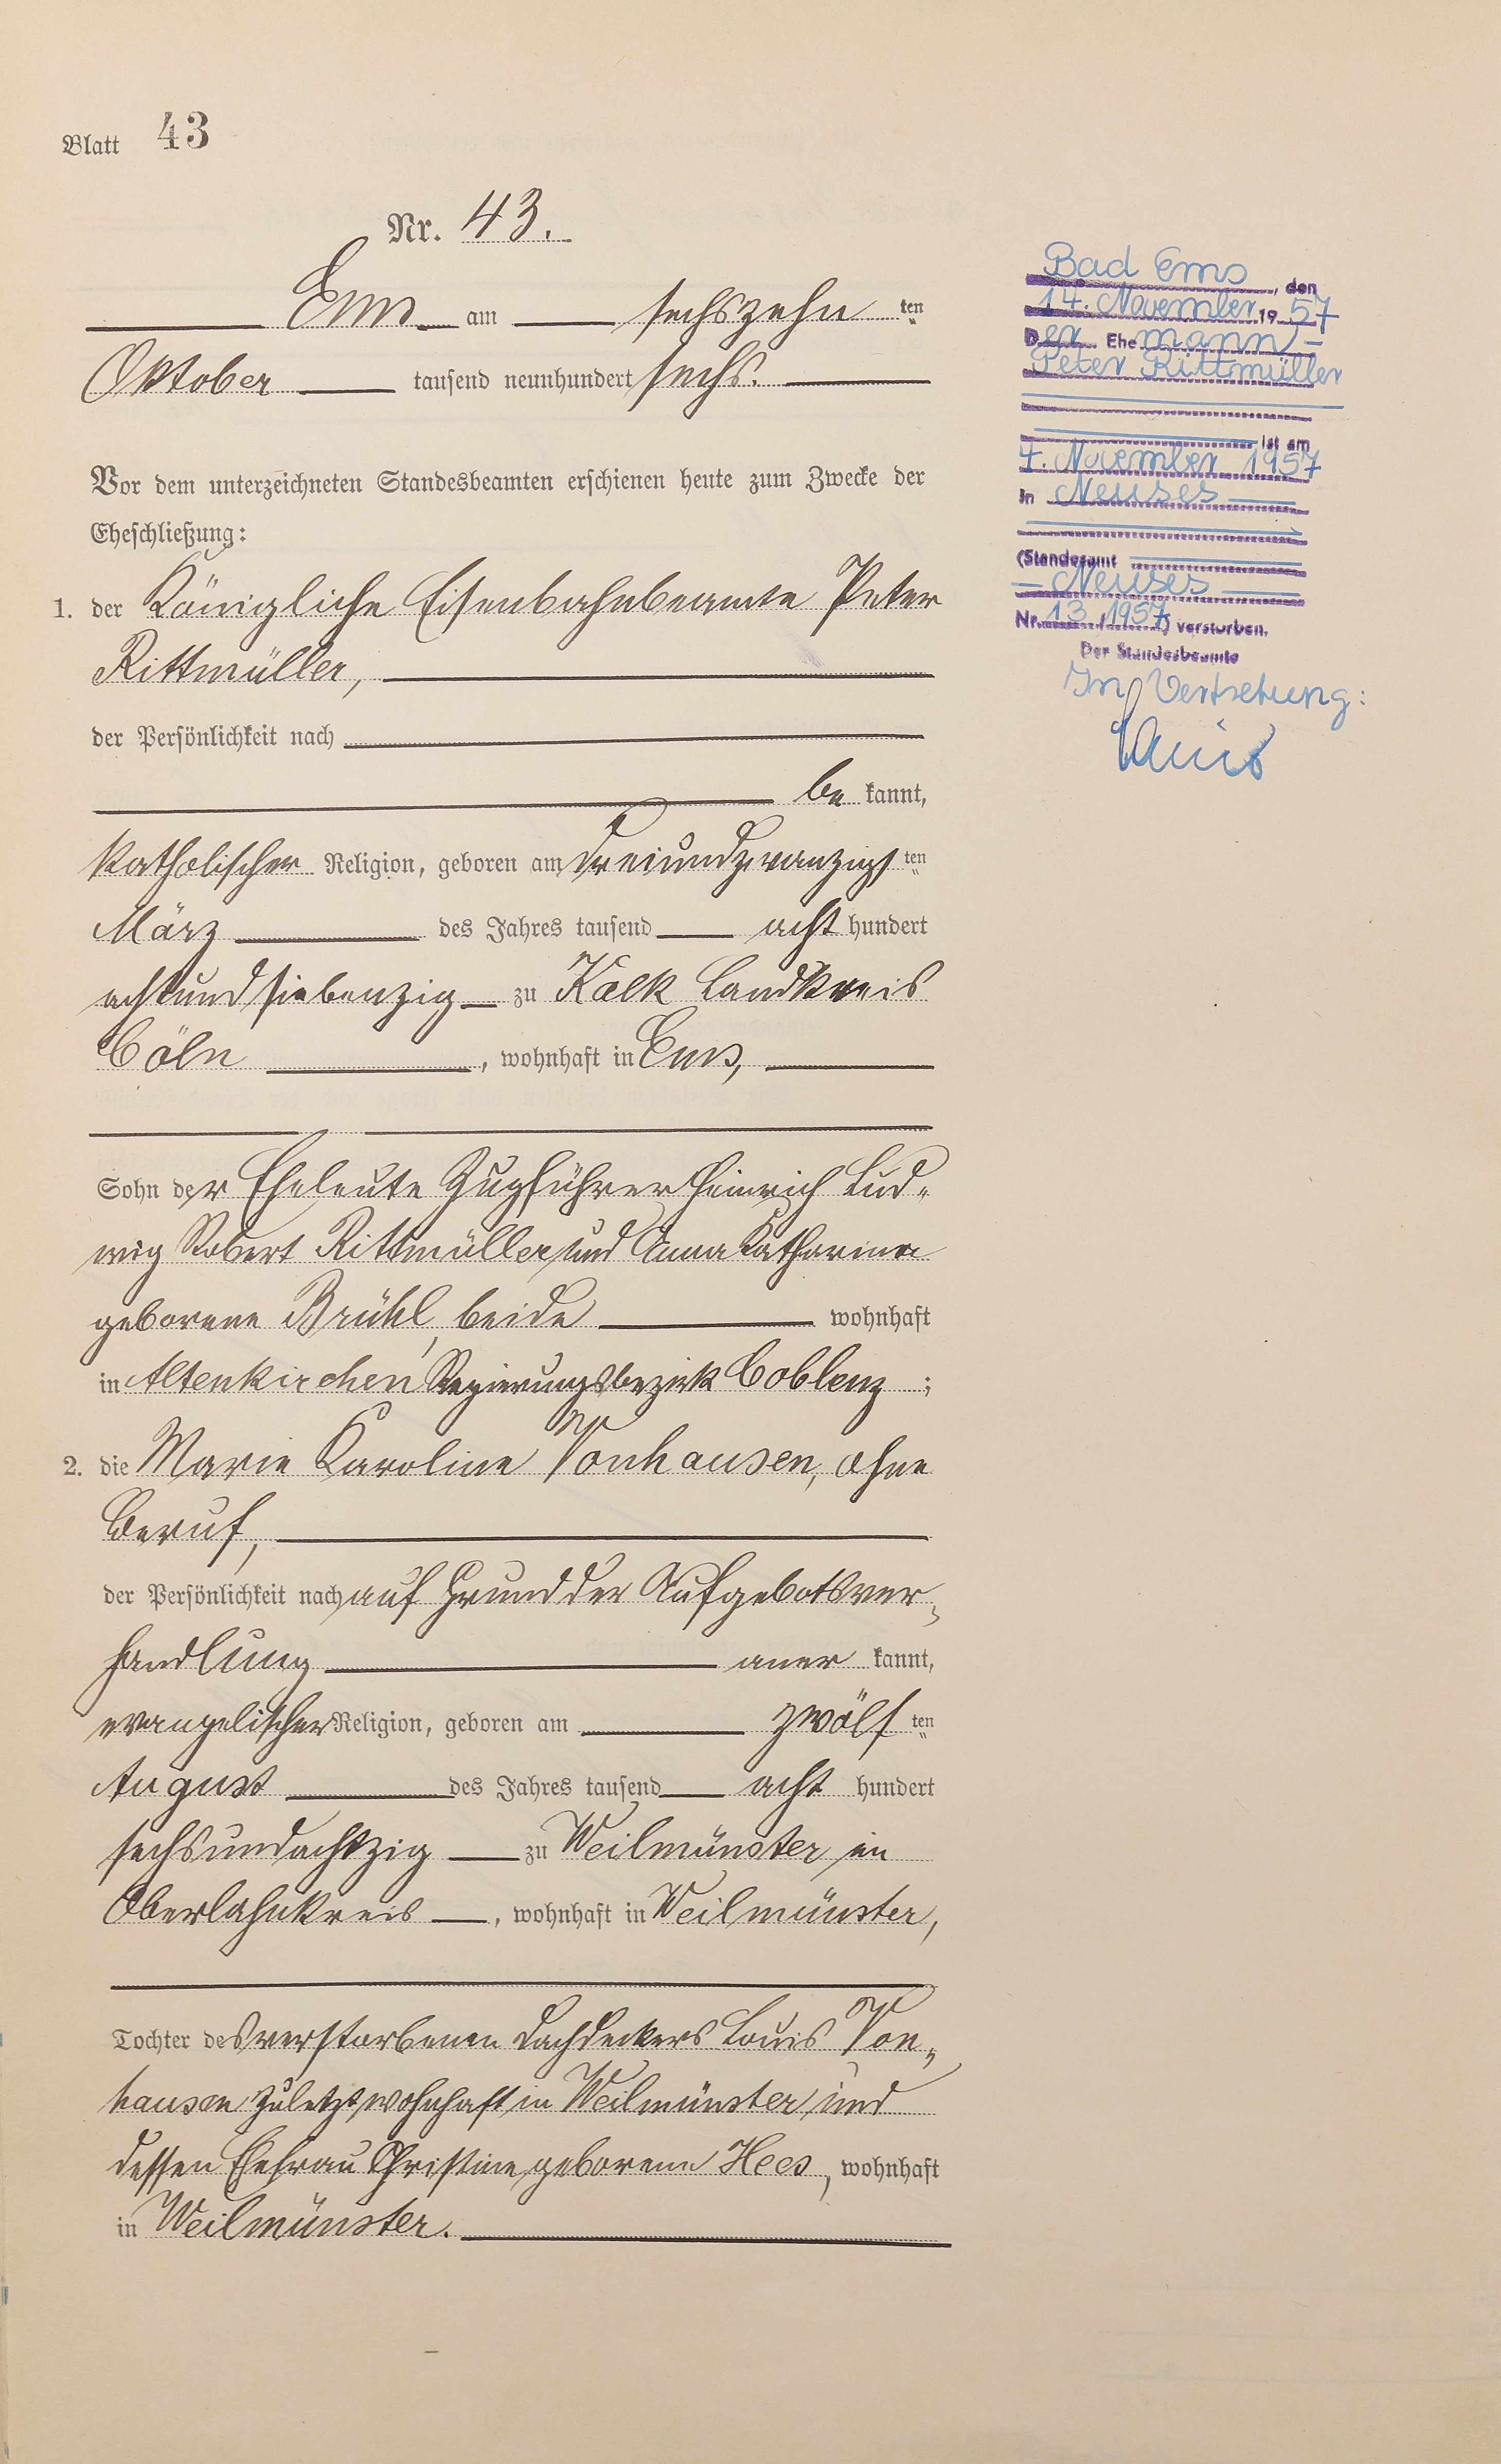 Blatt 43
Nr. 43.
Ems am sechszehn ten
Oktober tausend neunhundert sechs.
Vor dem unterzeichneten Standesbeamten erschienen heute zum Zwecke der
Eheschließung:
1. der Königliche Eisenbahnbeamte Peter
Rittmüller,
der Persönlichkeit nach
be kannt,
katholischer Religion, geboren am dreiundzwanzigs ten
März des Jahres tausend acht hundert
achtundsiebenzig zu Kalk Landkreis
Cöln, wohnhaft in Ems,
Sohn der Eheleute Zugführer Heinrich Lud-
wig Robert Rittmüller und Anna Katharina
geborene Brühl, beide wohnhaft
in Altenkirchen Regierungsbezirk Coblenz ;
2. die Marie Karoline Vonhausen, ohne
Beruf,
der Persönlichkeit nach auf Grund der Aufgebotsver-
handlung aner kannt,
evangelischer Religion, geboren am zwölf ten
August des Jahres tausend acht hundert
sechsundachtzig zu Weilmünster im
Oberlahnkreis, wohnhaft in Weilmünster,
Tochter des verstorbenen Dachdeckers Louis Von-
hausen zuletzt wohnhaft in Weilmünster und
dessen Ehefrau Christine geborene Hees, wohnhaft
in Weilmünster.
Bad Ems, den
14. November 1957
Der Ehemann -
Peter Rittmüller
ist am
4. November 1957
in Neuses
(Standesamt
Neuses
Nr. 13 / 1957) verstorben.
Der Standesbeamte
In Vertretung: